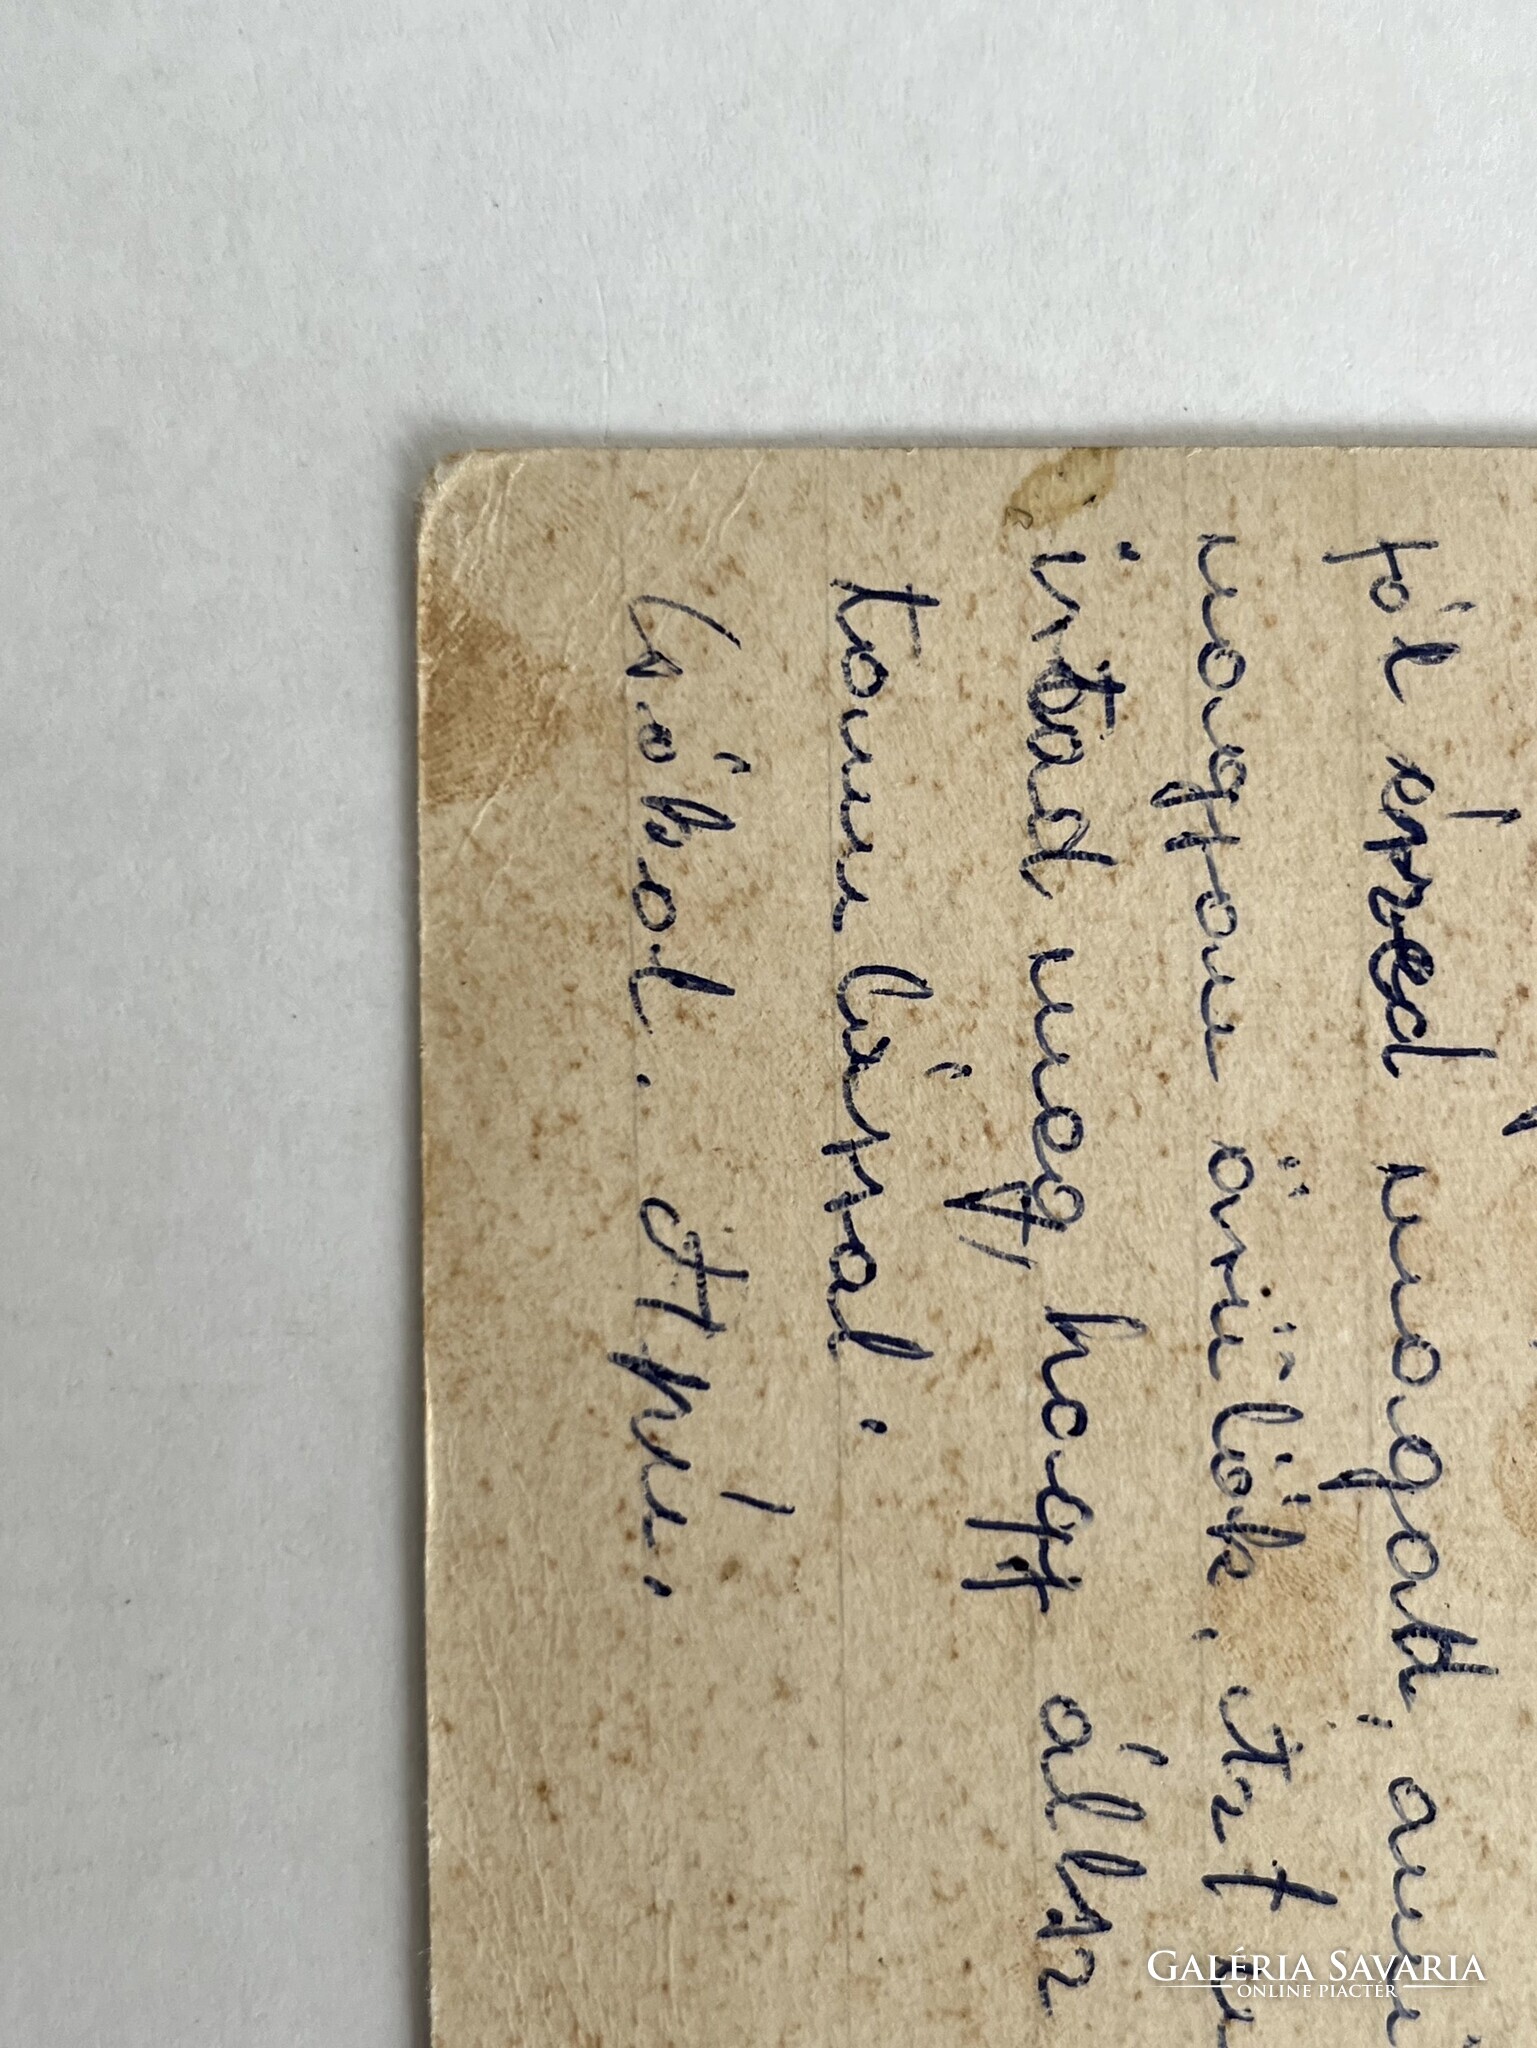 jól érzed magad, ami
nagyon örülök. Azt
írtad meg, hogy állsz
tanulással.
Csókol. Api.
GALÉRIA SAVARIA
ONLINE PIACTÉR